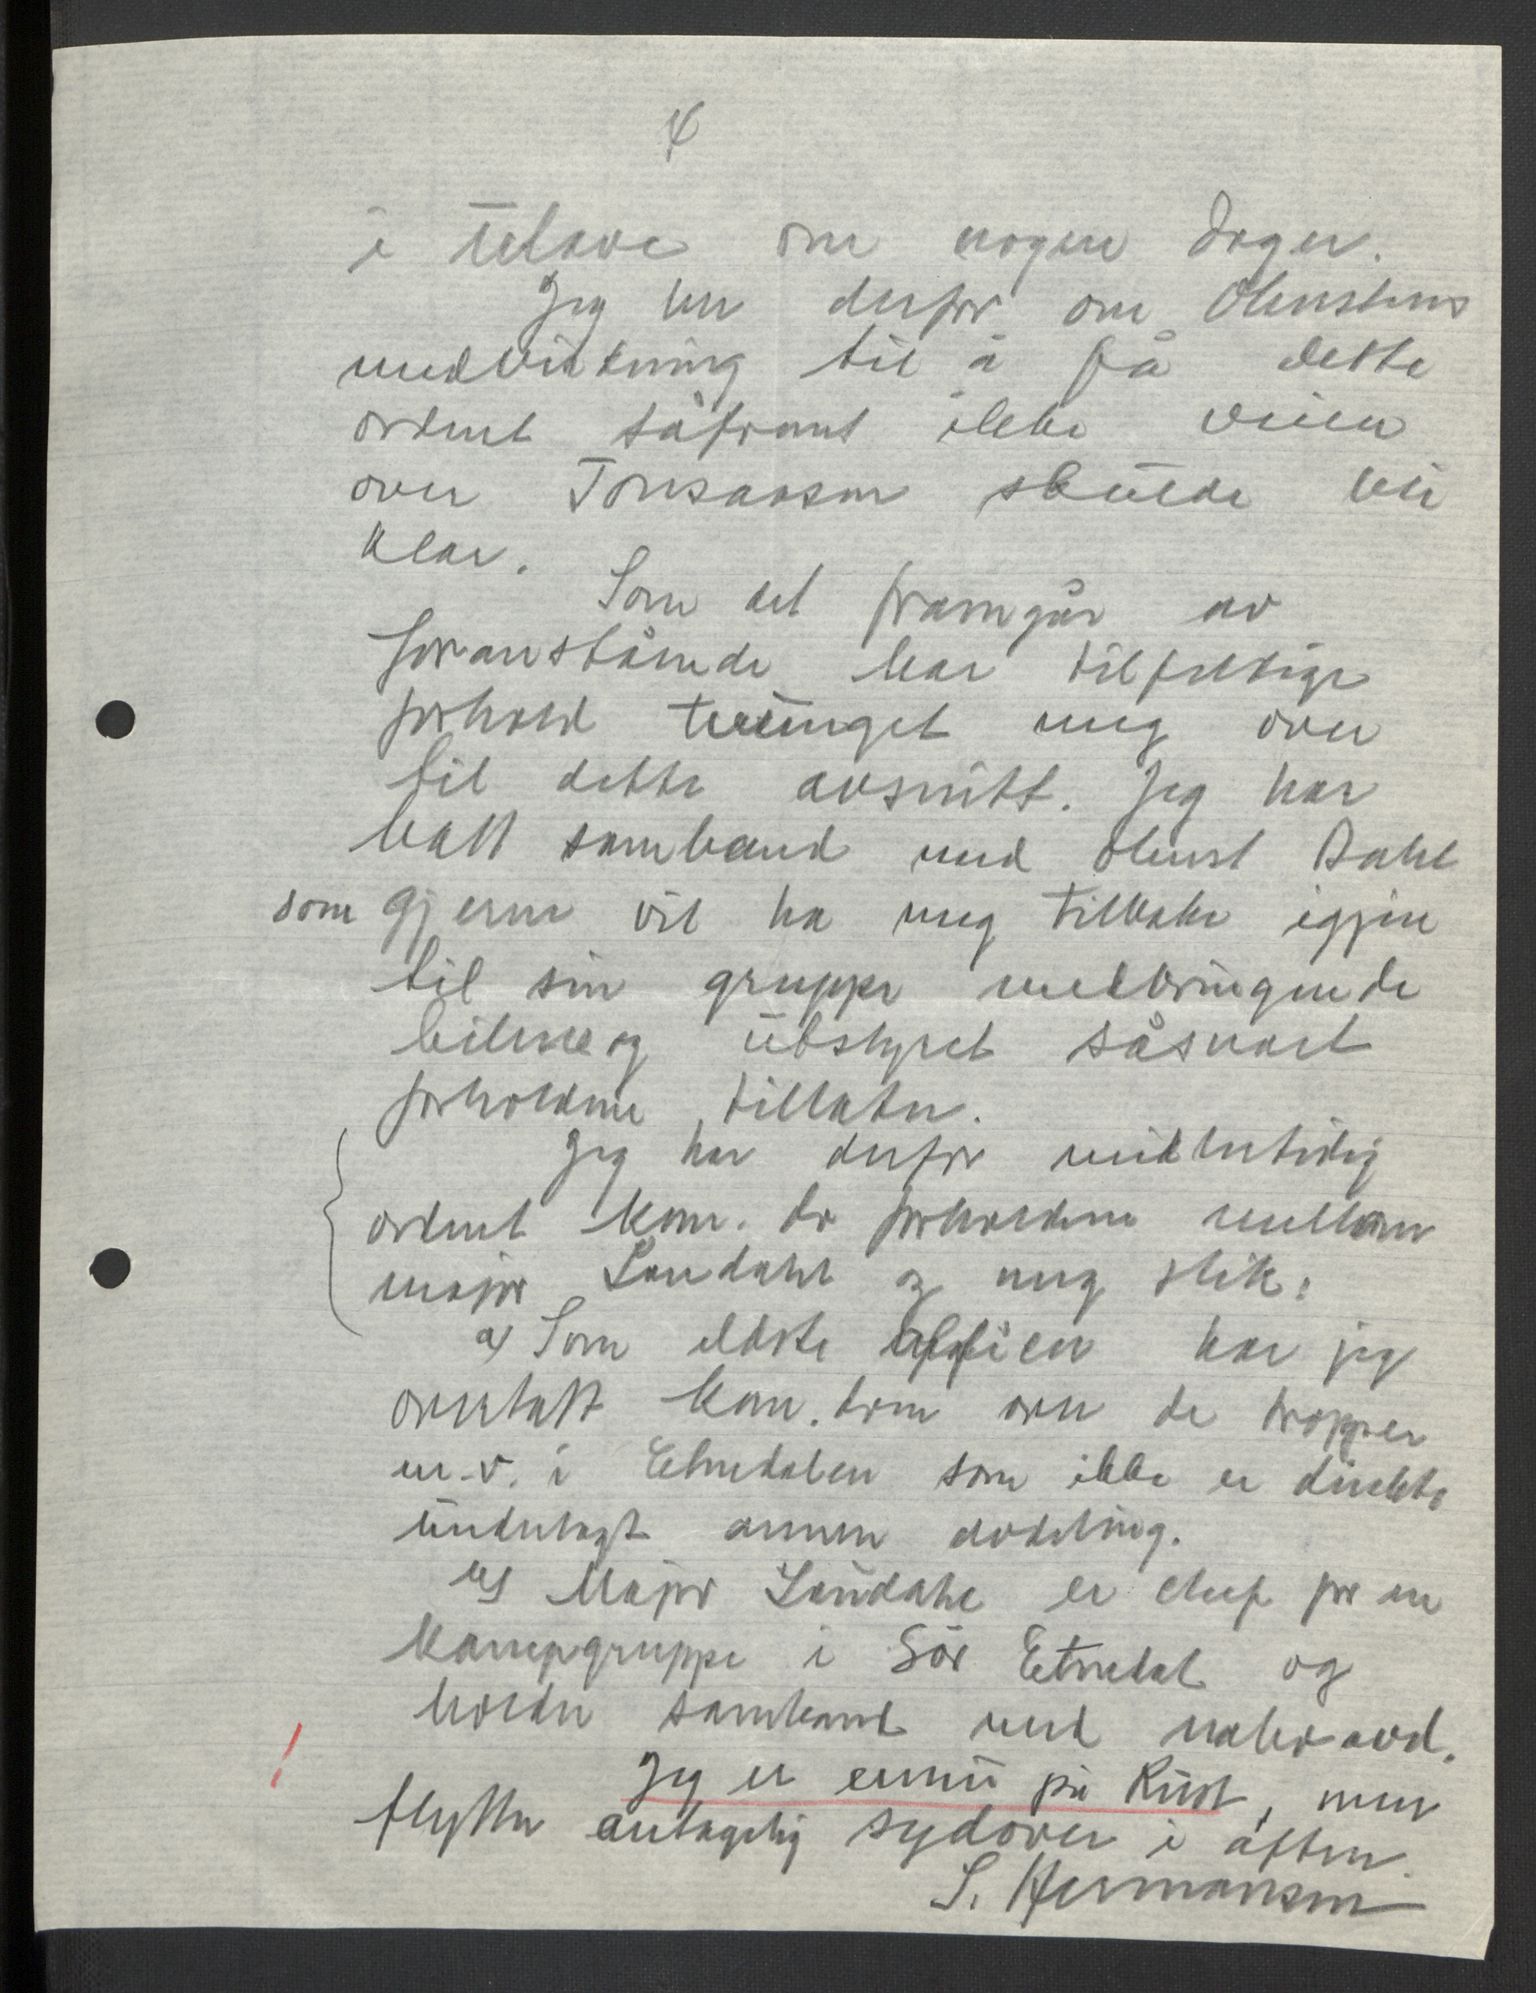 4
i utlave om nogen dager.
Jeg ber derfor om Oberstens
medvirkning til å få dette
ordnet såfremt ikke veien
over Tonsaasen skulde bli
klar.
Som det framgår av
foranstående har tilfeldige
forhold tvunget meg over
til dette avsnitt. Jeg har
hatt samband med oberst Dahl
som gjerne vil ha meg tilbake igjen
til sin gruppe medbringende
bilene og utstyret såsnart
forholdene tillater.
Jeg har derfor midlertidig
ordnet kom.do forholdene mellom
major Landahl og meg slik:
a) Som eldste officer har jeg
overtatt kom.doen over de tropper
m.v. i Etnedalen som ikke er direkte
underlagt annen avdeling.
b) Major Landahl er chef for en
kampgruppe i Sör Etnedal og
holder samband med naboavd.
Jeg er ennu på Rust, men
flytter antagelig sydover i aften.
S. Hermansen